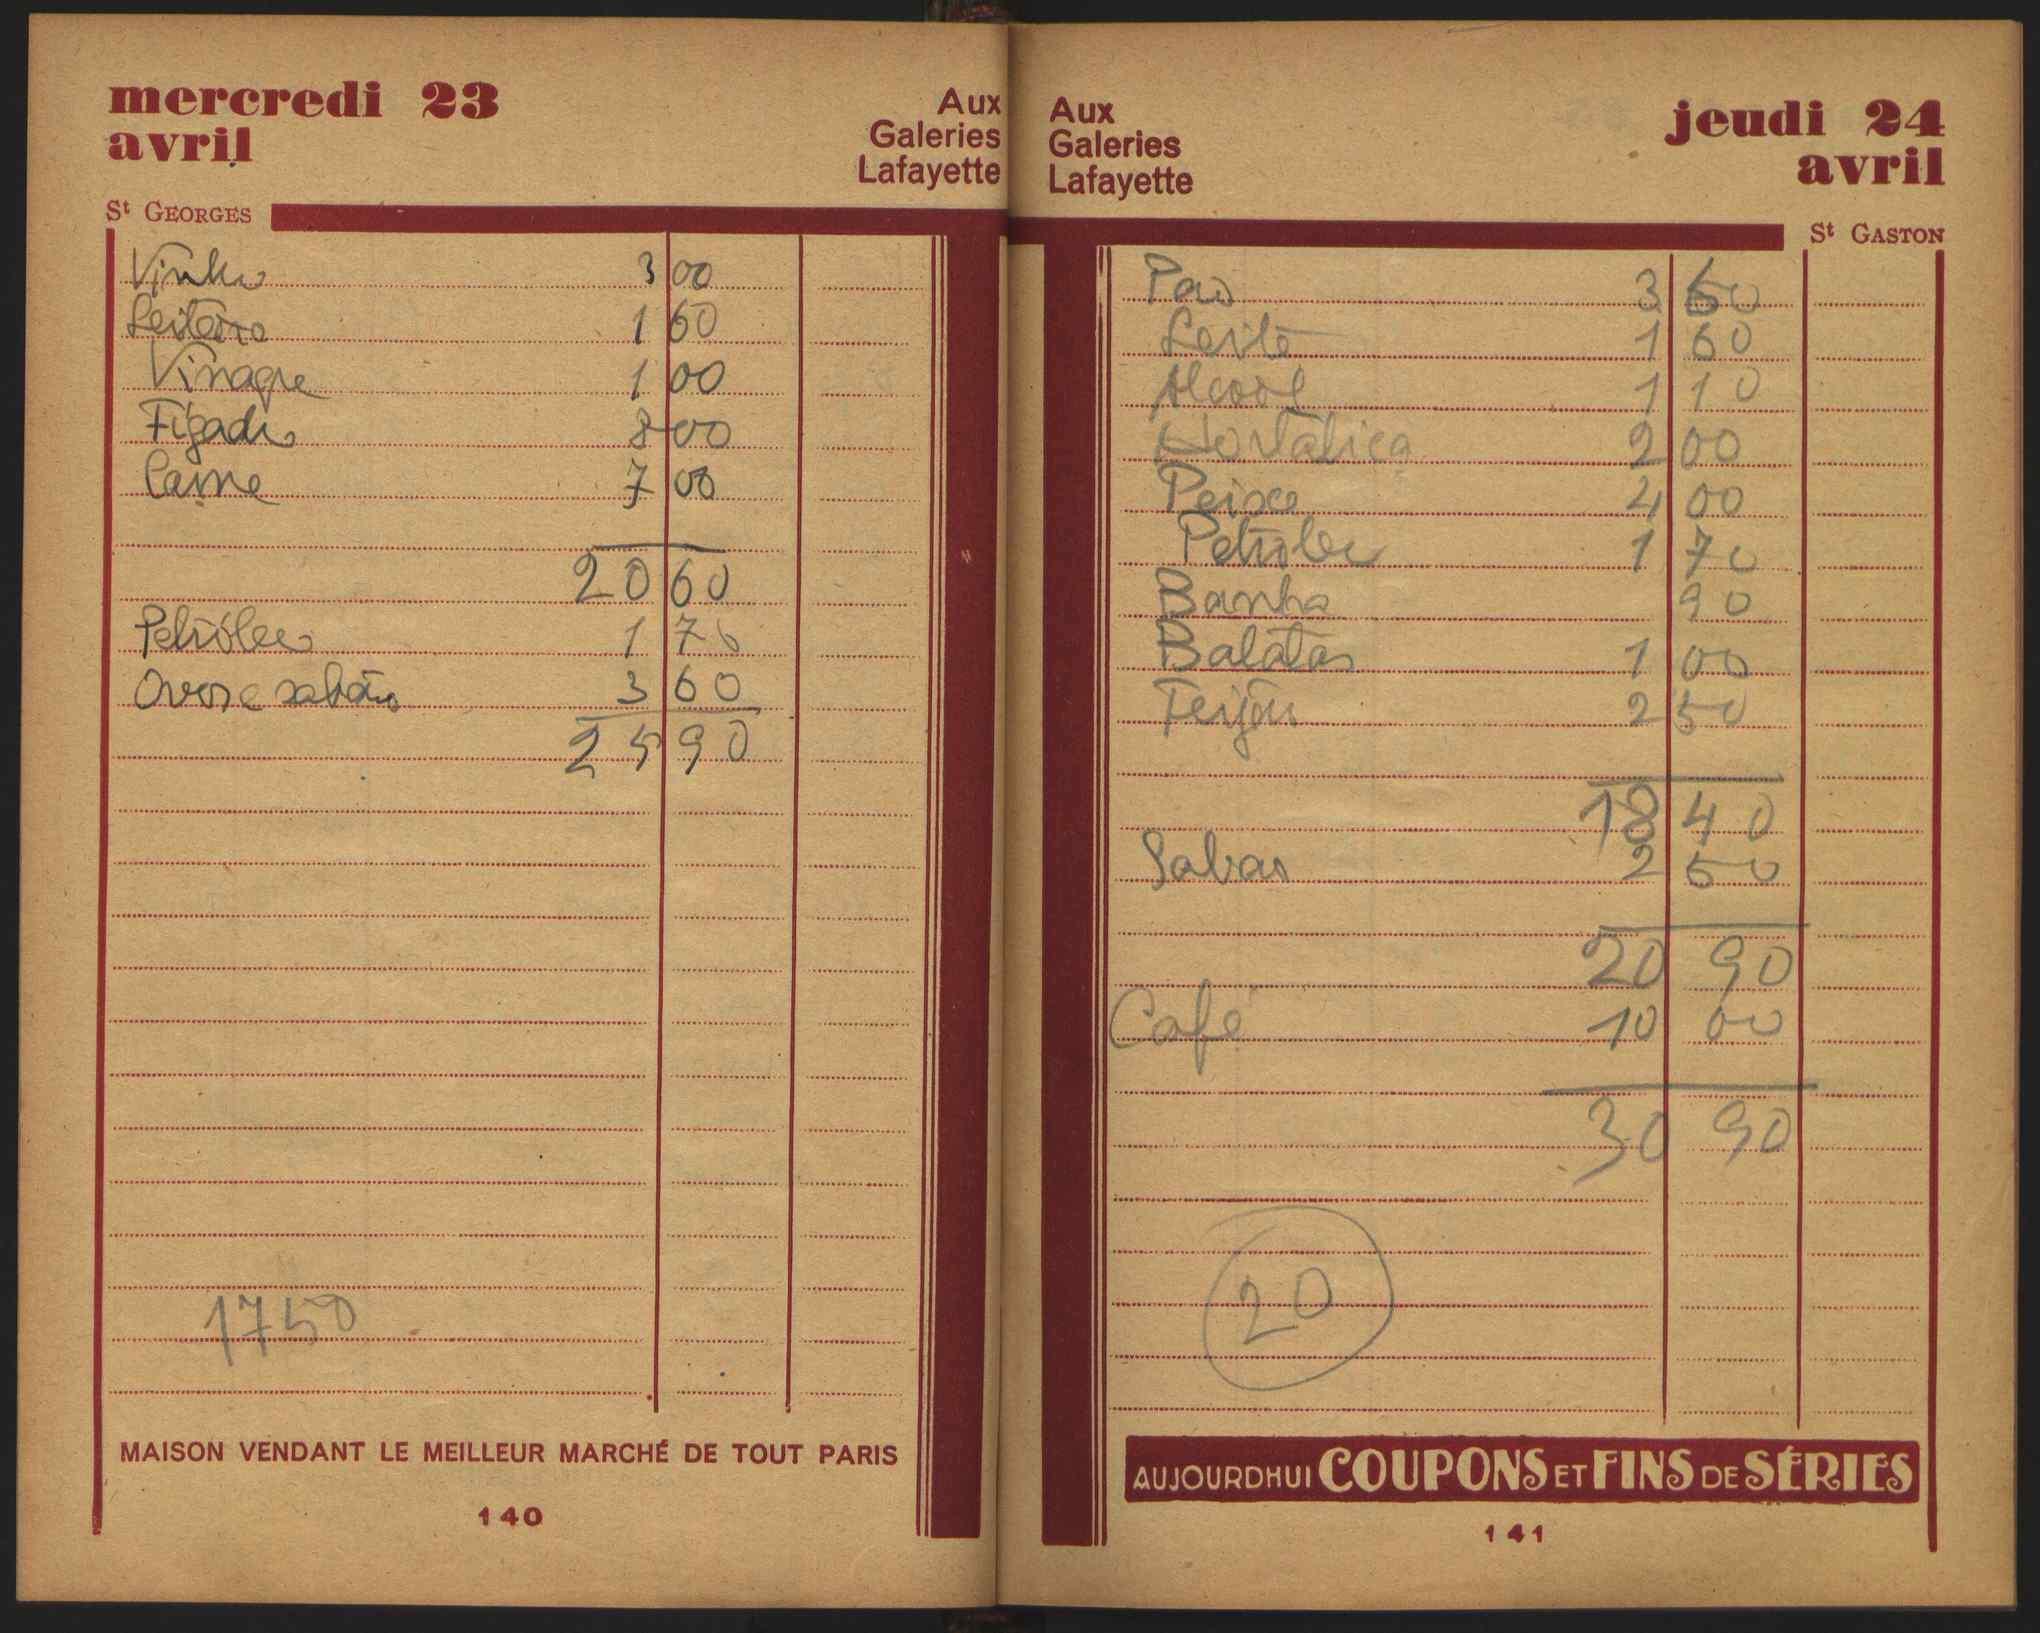 mercredi 23
avril
Aux
Galeries
Lafayette
St GEORGES
Vinho 3 00
Leiteiro 1 60
Vinagre 1 00
Figado 8 00
Carne 7 00
20 60
Petróleo 1 70
Ovos e sabão 3 60
25 90
1750
MAISON VENDANT LE MEILLEUR MARCHÉ DE TOUT PARIS
140
Aux
Galeries
Lafayette
jeudi 24
avril
St GASTON
Pao 3 60
Leite 1 60
Alcool 1 10
Hortaliça 2 00
Peixe 4 00
Petroleo 1 70
Banha 90
Batatas 1 00
Feijão 2 50
18 40
Sabao 2 50
20 90
Café 10 00
30 90
20
AUJOURDHUI COUPONS ET FINS DE SÉRIES
141